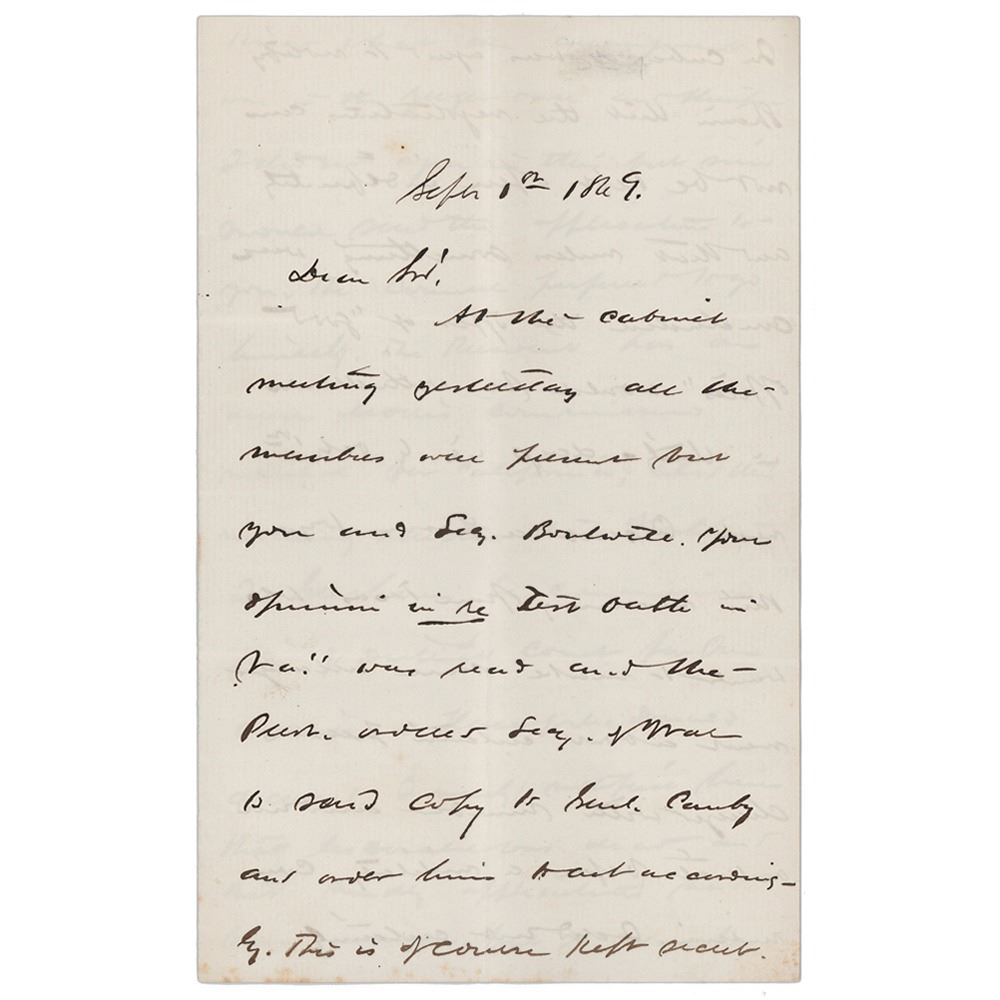 Sept 1st 1869.
Dear Sir!
At the cabinet
meeting yesterday all the
members were present but
you and Secy. Boutwell. Your
opinion in re Test oath in
Va!! was read and the
Prest. ordered Secy. of War
to send copy to Genl. Canby
and order him to act according-
ly. This is of course kept secret.